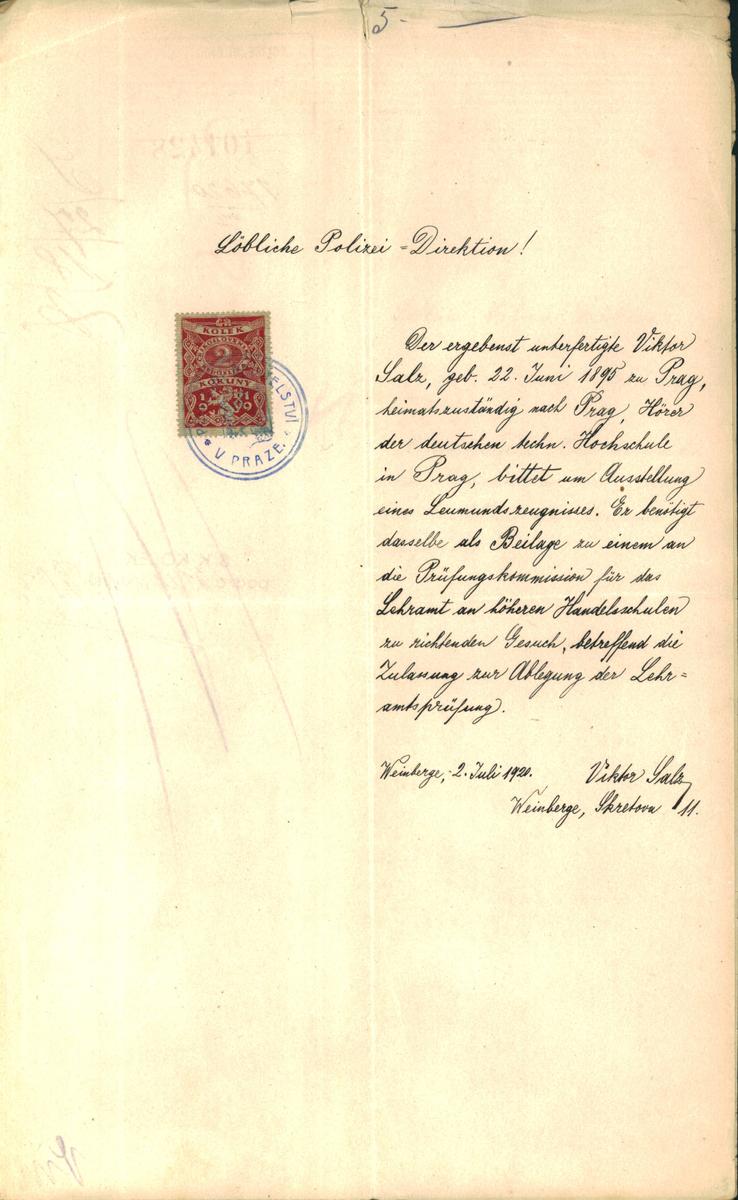 5.
Löbliche Polizei-Direktion!
KOLEK
2
KORUNY
1919
V PRAZE.
Der ergebenst unterfertigte Viktor
Salz, geb. 22. Juni 1895 zu Prag,
heimatszuständig nach Prag, Hörer
der deutschen techn. Hochschule
in Prag, bittet um Ausstellung
eines Leumundszeugnisses. Er benötigt
dasselbe als Beilage zu einem an
die Prüfungskommission für das
Lehramt an höheren Handelsschulen
zu richtenden Gesuch, betreffend die
Zulassung zur Ablegung der Lehr=
amtsprüfung.
Weinberge, 2. Juli 1920.
Viktor Salz
Weinberge, Skretova 11.